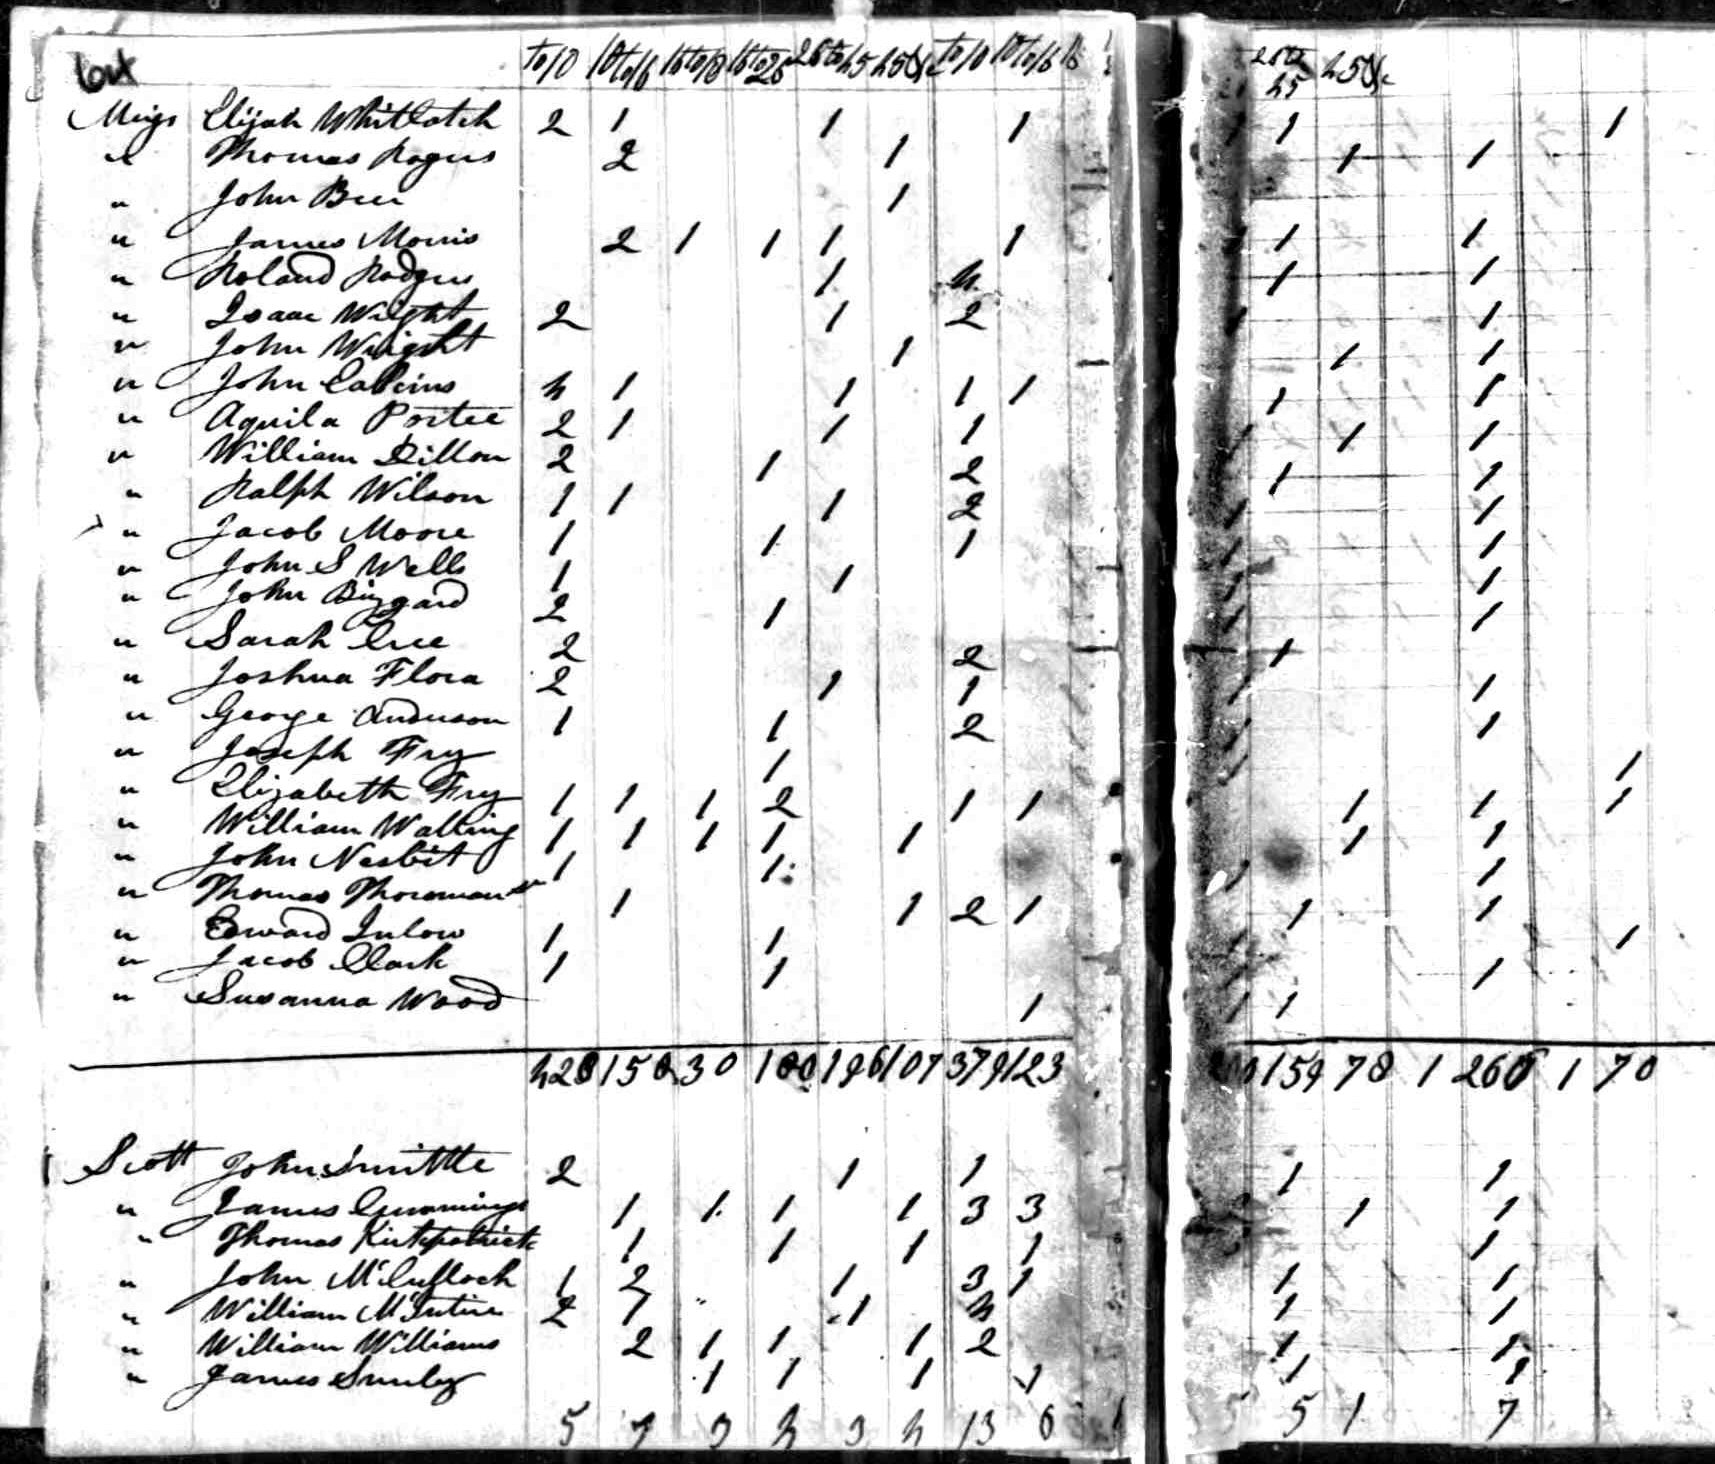 to 10 10 to 16 16 to 18 16 to 26 26 to 45 45 &c to 10 10 to 16 16 26 to 45 45 &c
Meigs Elijah Whitlatch 2 1 1 1 1 1
" Thomas Rogers 2 1 1 1
" John Beer 1
" James Morris 2 1 1 1 1 1 1
" Roland Rodgers 1 4 1 1
" Isaac Wright 2 1 2 1 1
" John Wright 1 1 1
" John Calvins 4 1 1 1 1 1 1
" Aquila Porter 2 1 1 1 1 1 1
" William Dillon 2 1 2 1 1
" Ralph Wilson 1 1 1 2 1 1
" Jacob Moore 1 1 1 1 1
" John S Wells 1 1 1 1
" John Bizgard 2 1 1 1
" Sarah Cree 2 2 1
" Joshua Flora 2 1 1 1 1
" George Anderson 1 1 2 1 1
" Joseph Fry 1 1 1
" Elizabeth Fry 1 1 1 2 1 1 1 1 1
" William Walling 1 1 1 1 1 1 1
" John Nesbit 1 1 1 1
" Thomas Thoroman 1 1 2 1 1 1
" Edward Inlow 1 1 1 1
" Jacob Clark 1 1 1 1
" Susanna Wood 1 1 1
428 150 30 100 196 107 379 123 159 78 1 260 1 70
Scott John Smittle 2 1 1 1 1
" James Cummings 1 1 1 1 3 3 1 1
" Thomas Kirkpatrick 1 1 1 1 1
" John McCulloch 1 2 1 3 1 1 1
" William McIntire 2 1 1 4 1 1
" William Williams 2 1 1 1 2 1 1
" James Smiley 1 1 1 1 1 1
5 7 3 4 3 4 13 6 5 1 7